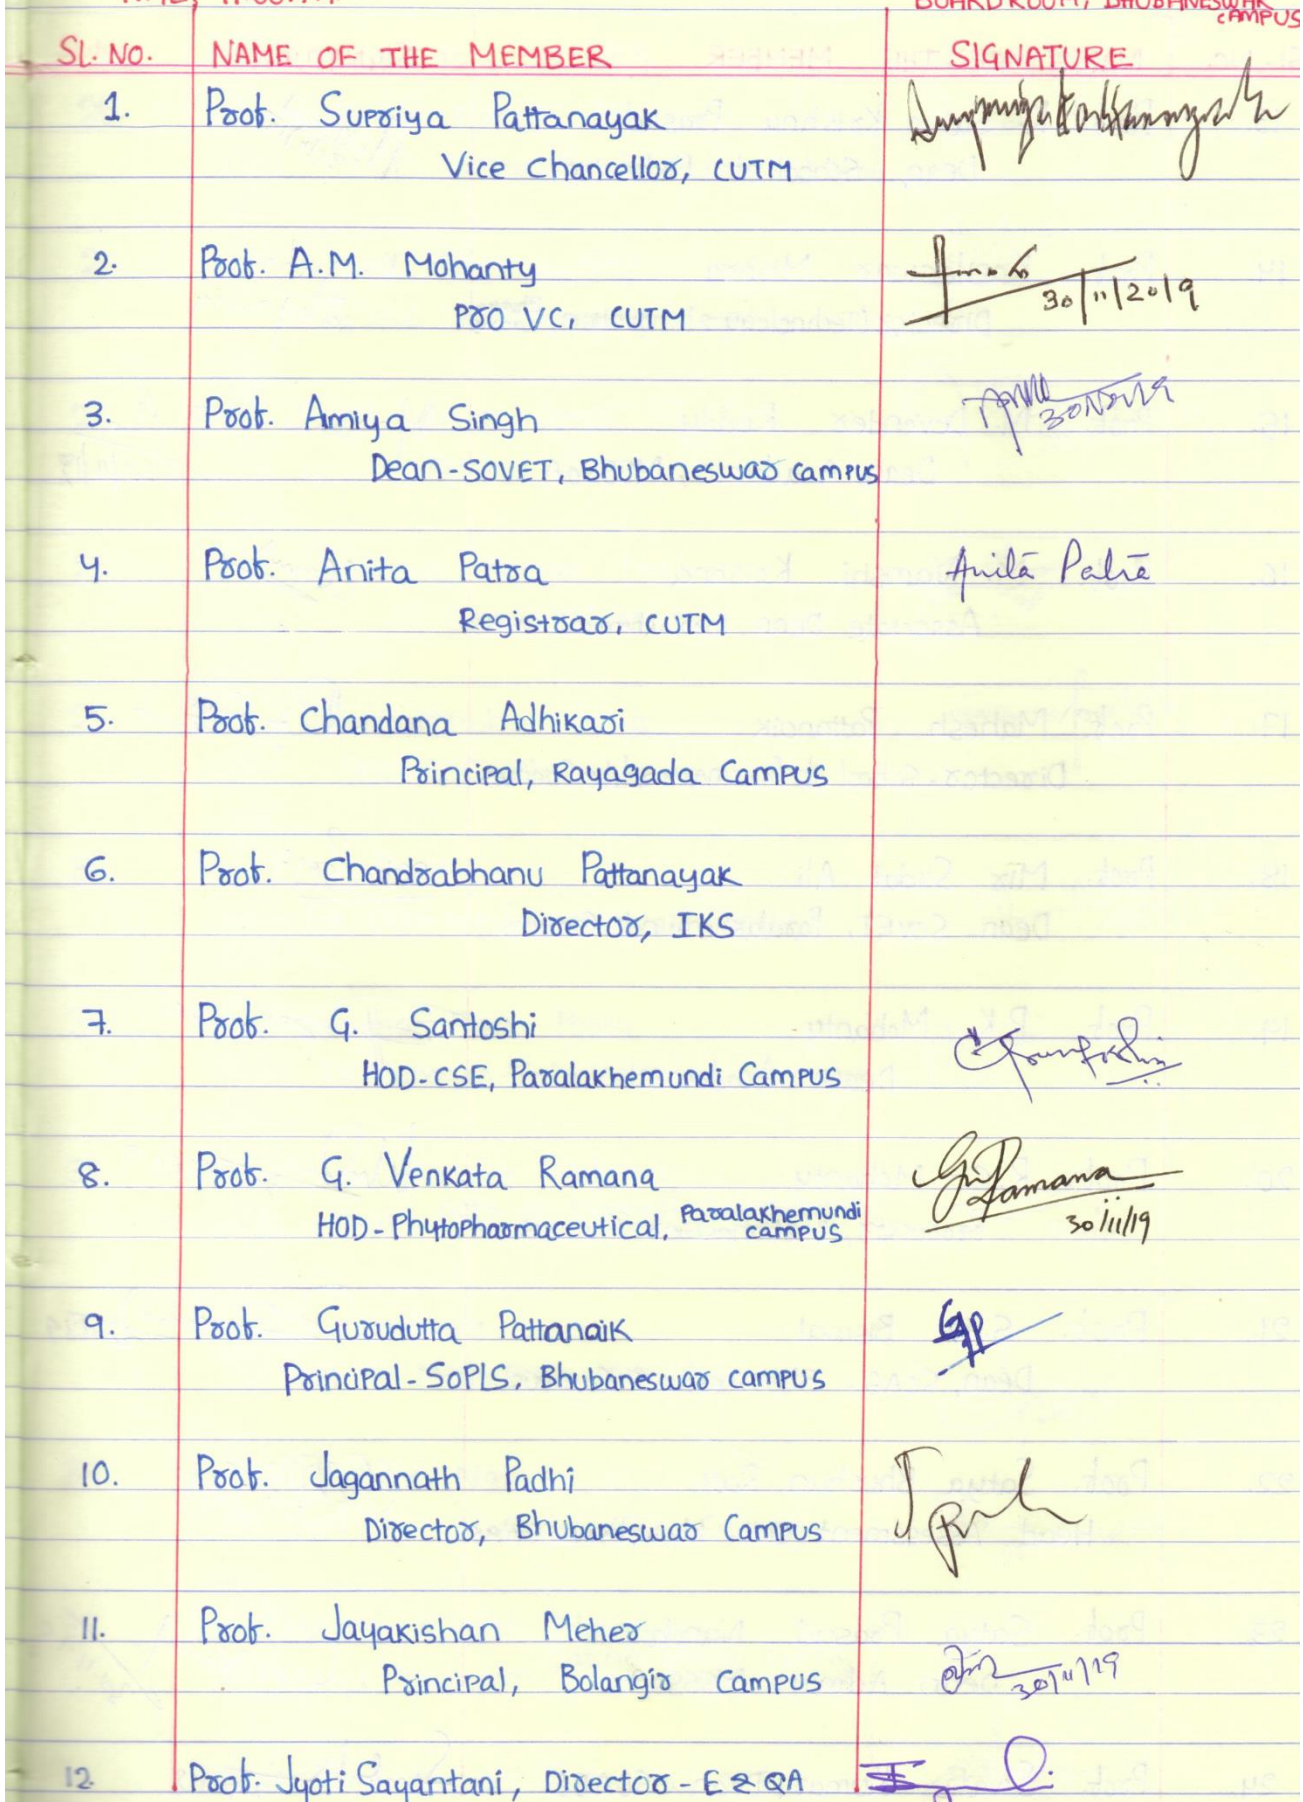 BOARD ROOM, BHUBANESWAR
CAMPUS
SL. NO. NAME OF THE MEMBER SIGNATURE
1. Prof. Supriya Pattanayak
Vice Chancellor, CUTM
2. Prof. A.M. Mohanty
Pro VC, CUTM 30/11/2019
3. Prof. Amiya Singh
Dean-SOVET, Bhubaneswar campus
4. Prof. Anita Patra Anita Patra
Registrar, CUTM
5. Prof. Chandana Adhikari
Principal, Rayagada Campus
6. Prof. Chandrabhanu Pattanayak
Director, IKS
7. Prof. G. Santoshi
HOD-CSE, Paralakhemundi Campus
8. Prof. G. Venkata Ramana GVRamana
HOD-Phytopharmaceutical, Paralakhemundi campus 30/11/19
9. Prof. Gurudutta Pattanaik GP
Principal-SoPLS, Bhubaneswar campus
10. Prof. Jagannath Padhi
Director, Bhubaneswar Campus
11. Prof. Jayakishan Meher
Principal, Bolangir Campus 30/11/19
12. Prof. Jyoti Sayantani, Director - E & QA